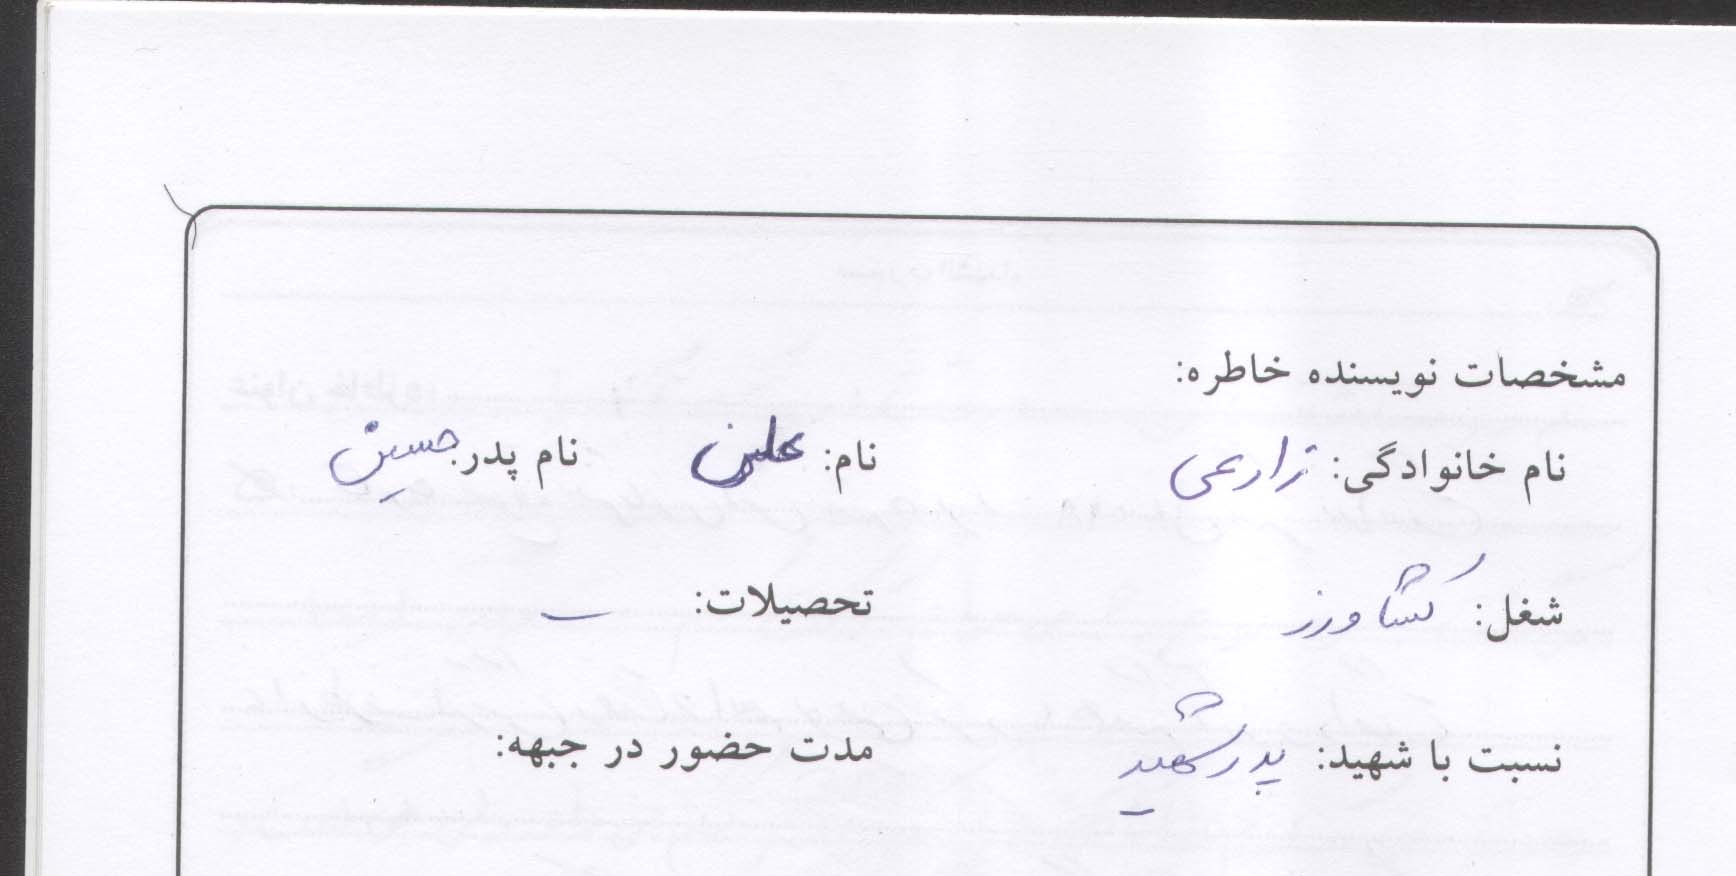 مشخصات نویسنده خاطره:
نام خانوادگی: زارعی نام: علی نام پدر: حسین
شغل: کشاورز تحصیلات: ـ
نسبت با شهید: پدر شهید مدت حضور در جبهه: